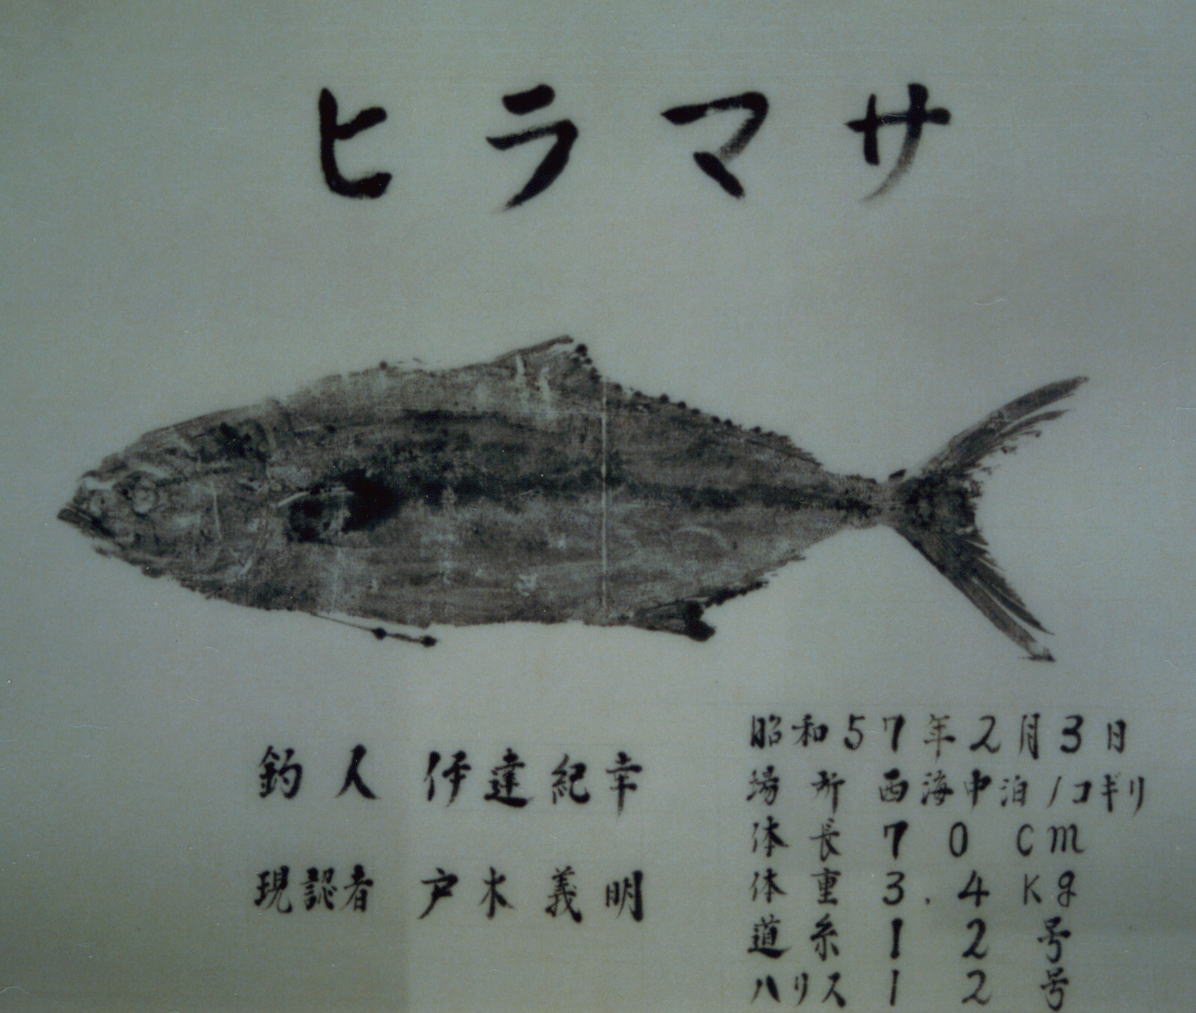 ヒラマサ
釣人 伊達紀幸
現認者 戸木義明
昭和57年2月3日
場所 西海中泊ノコギリ
体長 70cm
体重 3.4Kg
道糸 12号
ハリス 12号